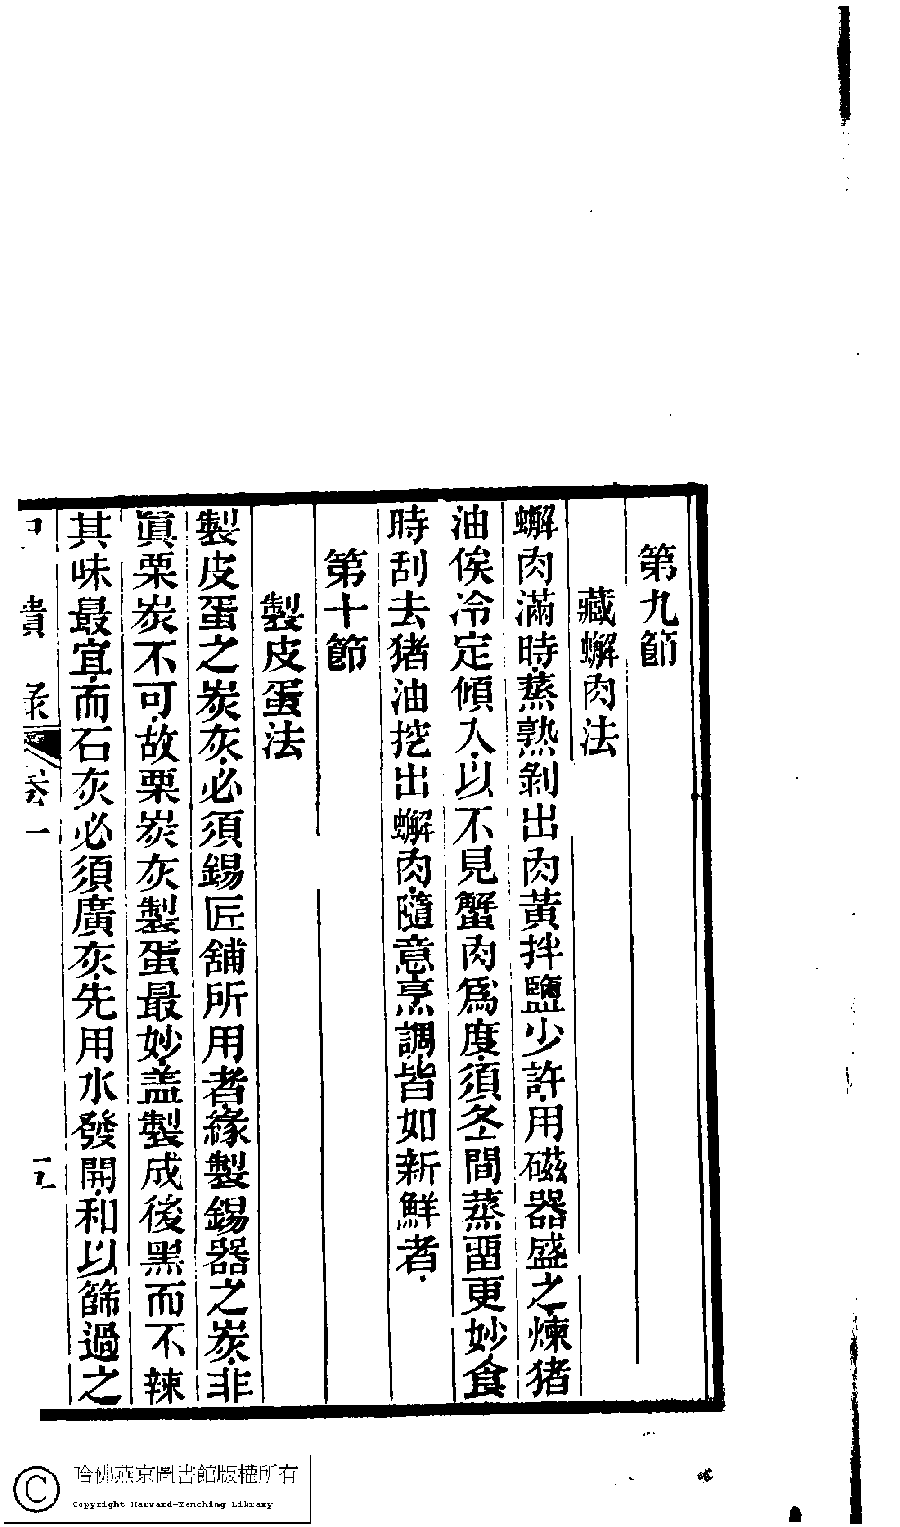 第九節
藏蠏肉法
蠏肉滿時蒸熟剝出肉黃拌鹽少許用磁器盛之煉猪
油俟冷定傾入以不見蟹肉爲度須冬間蒸畱更妙食
時刮去猪油挖出蠏肉隨意烹調皆如新鮮者
第十節
製皮蛋法
製皮蛋之炭灰必須錫匠舖所用者緣製錫器之炭非
眞栗炭不可故栗炭灰製蛋最妙盖製成後黑而不辣
其味最宜而石灰必須廣灰先用水發開和以篩過之
中饋录卷一
五
哈佛燕京圖書館版權所有
Copyright Harvard-Yenching Library